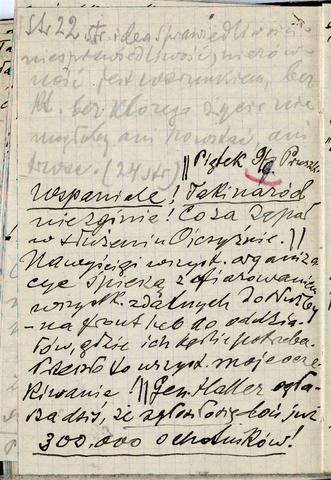 Str 22 str. idea sprawiedliwości
niesprawiedliwość, nierów-
ność jest warunkiem, bez
bez którego życie nie
mogłoby ani powstać ani
trwać. (24 str)
|| Piątek 9/ Pruszk.
Wspaniele! Taki naród
nie zginie! Co za zapał
w służeniu Ojczyźnie. ||
Na wyścigi wszyst. organiza
cje śpieszą z ofiarowaniem
wszystk. zdatnych do służby
- na front lub do oddzia-
łów, gdzie ich będzie potrzeba.
to wszyst. moje ocze
kiwanie! || Jen. Haller ogła-
sza dziś, że zgłosiło się doń już
300.000 ochotników!